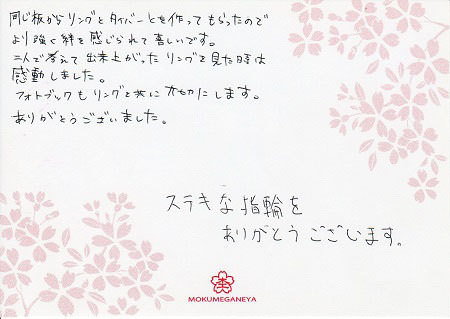 同じ板からリングとタイバーとを作ってもらったので
より強く絆を感じられて喜しいです。
二人で考えて出来上がったリングを見た時は
感動しました。
フォトブックもリングと共に大切にします。
ありがとうございました。
ステキな指輪を
ありがとうございます。
MOKUMEGANEYA